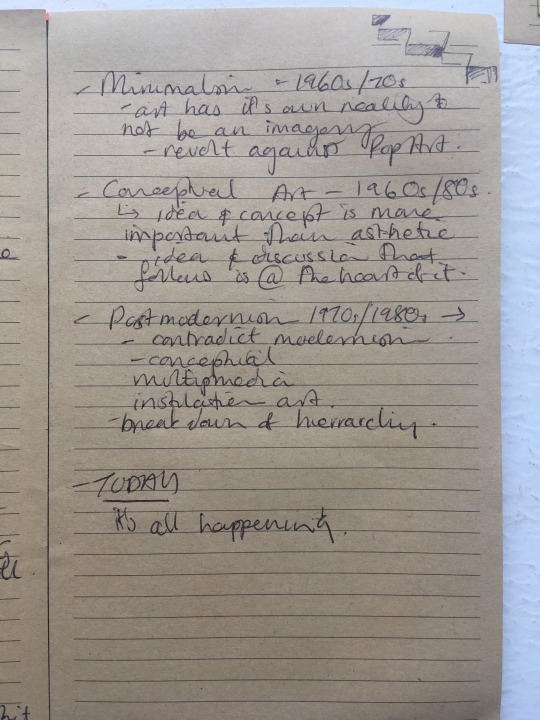 - Minimalsim - 1960s/70s
- art has it's own reality &
not be an imagery
- revolt against Pop Art.
- Conceptual Art - 1960s/80s.
↳ idea & concept is more
important than asthetic
- idea & discussion that
follows is @ the heart of it.
- Postmodernism 1970s/1980s →
- contradict modernism.
- conceptual
multipmedia
instilation art.
- break down of hierrarchy.
- TODAY
it's all happening.